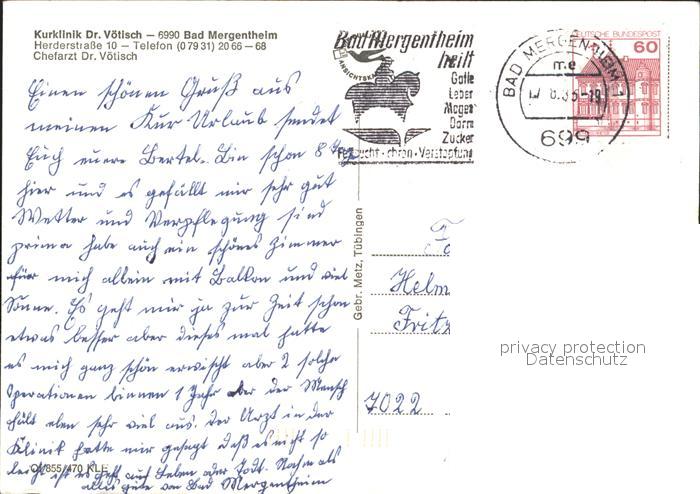 Kurklinik Dr. Vötisch – 6990 Bad Mergentheim
Herderstraße 10 – Telefon (0 79 31) 20 66 – 68
Chefarzt Dr. Vötisch
Einen schönen Gruß aus
meinen Kur Urlaub sendet
Euch euere Bertel. Bin schon 8
hier und es gefällt mir sehr gut
Wetter und Verpflegung sind
prima habe auch ein schönes Zimmer
für mich allein mit Balkon und viel
Sonne. Es geht mir ja zur Zeit schon
etwas besser aber dieses mal hatte
es mich ganz schön erwischt aber 2 solche
Operationen binnen 1 Jahr aber der Mensch
hält eben sehr viel aus. Der Arzt in der
Klinik hatte mir gesagt daß es nicht so
leicht ist es geht auf Leben oder Todt. Nochmals
alles gute von Bad Mergentheim
OI/855/470 KLE
Gebr. Metz, Tübingen
Bad Mergentheim
heilt
Galle
Leber
Magen
Darm
Zucker
Fettsucht · chron · Verstopfung
BAD MERGENTHEIM
me
699
DEUTSCHE BUNDESPOST
60
Helm
Fritz
7022
privacy protection
Datenschutz